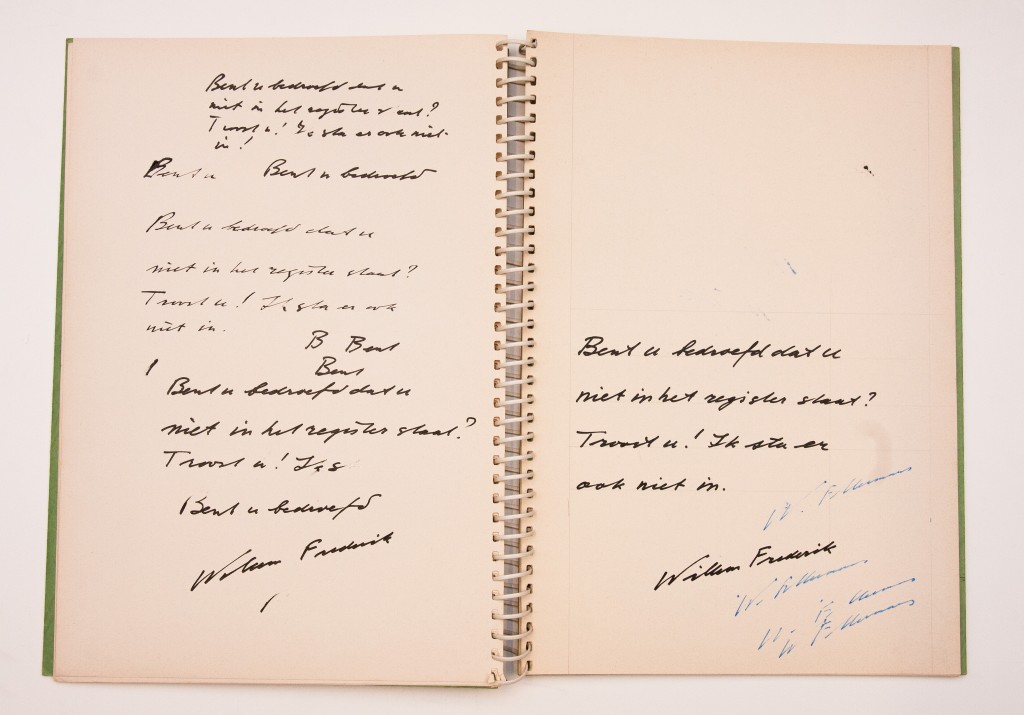 Bent u bedroefd dat u
niet in het register staat?
Troost u! Ik sta er ook niet
in!
Bent u Bent u bedroefd
Bent u bedroefd dat u
niet in het register staat?
Troost u! Ik sta er ook
niet in.
B Bent
Bent
Bent u bedroefd dat u
niet in het register staat?
Troost u! Ik s
Bent u bedroefd
Willem Frederik
Bent u bedroefd dat u
niet in het register staat?
Troost u! Ik sta er
ook niet in.
Willem Frederik